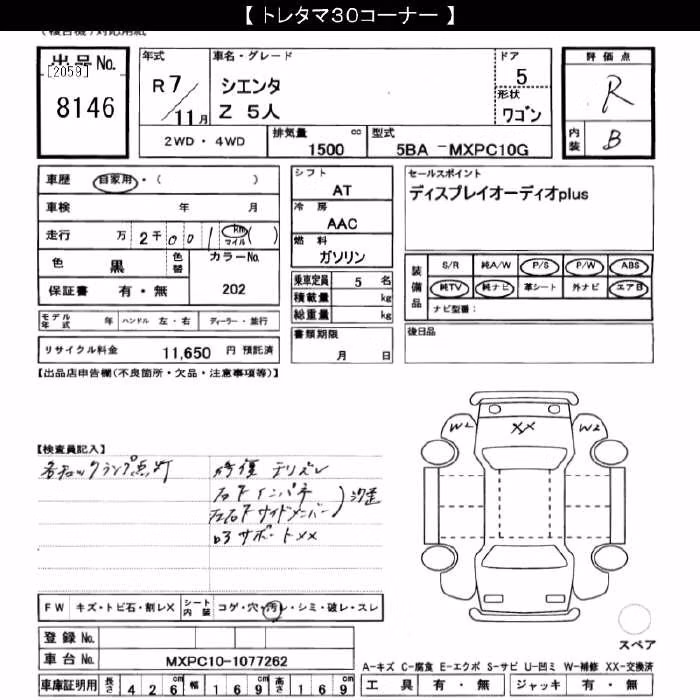 【 トレタマ30コーナー 】
出品No.
[2059]
8146
年式
R 7/11月
車名・グレード
シエンタ
Z 5人
ドア
5
形状
ワゴン
評価点
R
内装
B
2WD・4WD
排気量 1500 cc
型式 5BA -MXPC10G
車歴 自家用・( )
車検 年 月
走行 万 2千 0 0 1 km マイル ( )
色 黒 色替
カラーNo. 202
保証書 有・無
シフト
AT
冷房
AAC
燃料
ガソリン
乗車定員 5 名
積載量 kg
総重量 kg
書類期限
月 日
セールスポイント
ディスプレイオーディオplus
装備品
S/R 純A/W P/S P/W ABS
純TV 純ナビ 革シート 外ナビ エアB
ナビ型番:
後日品
モデル年式 年 ハンドル 左・右 ディーラー・並行
リサイクル料金 11,650 円 預託済
【出品店申告欄(不良箇所・欠品・注意事項等)】
【検査員記入】
修復
右下インパネ
左右下サイドメンバー
コアサポートXX
W2 XX W2
FW キズ・トビ石・割レX
シート内装 コゲ・穴・汚レ・シミ・破レ・スレ
登録No.
車台No. MXPC10-1077262
車庫証明用 長さ 426cm 幅 169cm 高さ 169cm
スペア
A-キズ C-腐食 E-エクボ S-サビ U-凹ミ W-補修 XX-交換済
工具 有・無 ジャッキ 有・無